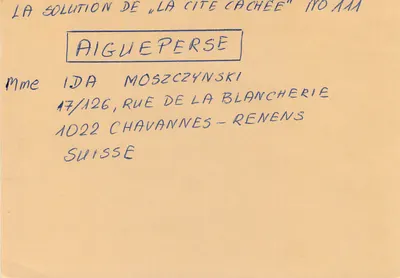 LA SOLUTION DE „LA CITÉ CACHÉE" NO 111
AIGUEPERSE
Mme IDA MOSZCZYNSKI
17/126, RUE DE LA BLANCHERIE
1022 CHAVANNES-RENENS
SUISSE